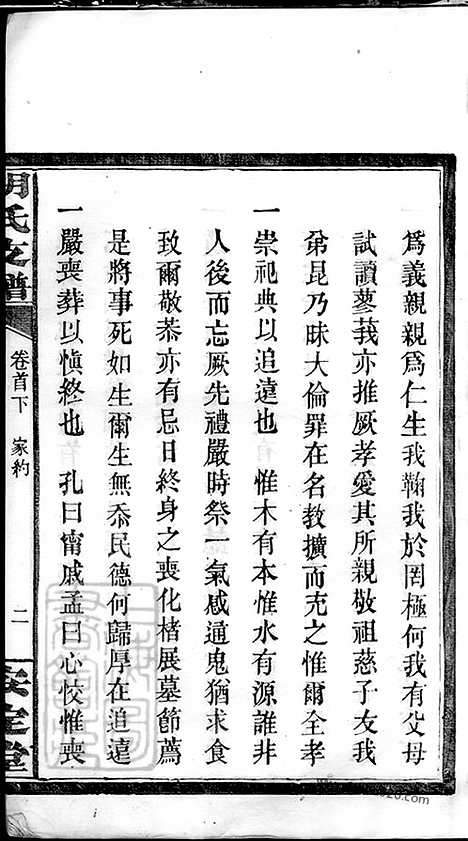 為義親親為仁生我鞠我於罔極何我有父母
試讀蓼莪亦推厥孝愛其所親敬祖慈子友我
弟昆乃昧大倫罪在名教擴而充之惟爾全孝
一崇祀典以追遠也　惟木有本惟水有源誰非
人後而忘厥先禮嚴時祭一氣感通鬼猶求食
致爾敬恭亦有忌日終身之喪化楮展墓節薦
是將事死如生爾生無忝民德何歸厚在追遠
一嚴喪葬以慎終也　孔曰甯戚孟曰心恔惟喪
胡氏支譜
卷首下　家約
二
安定堂